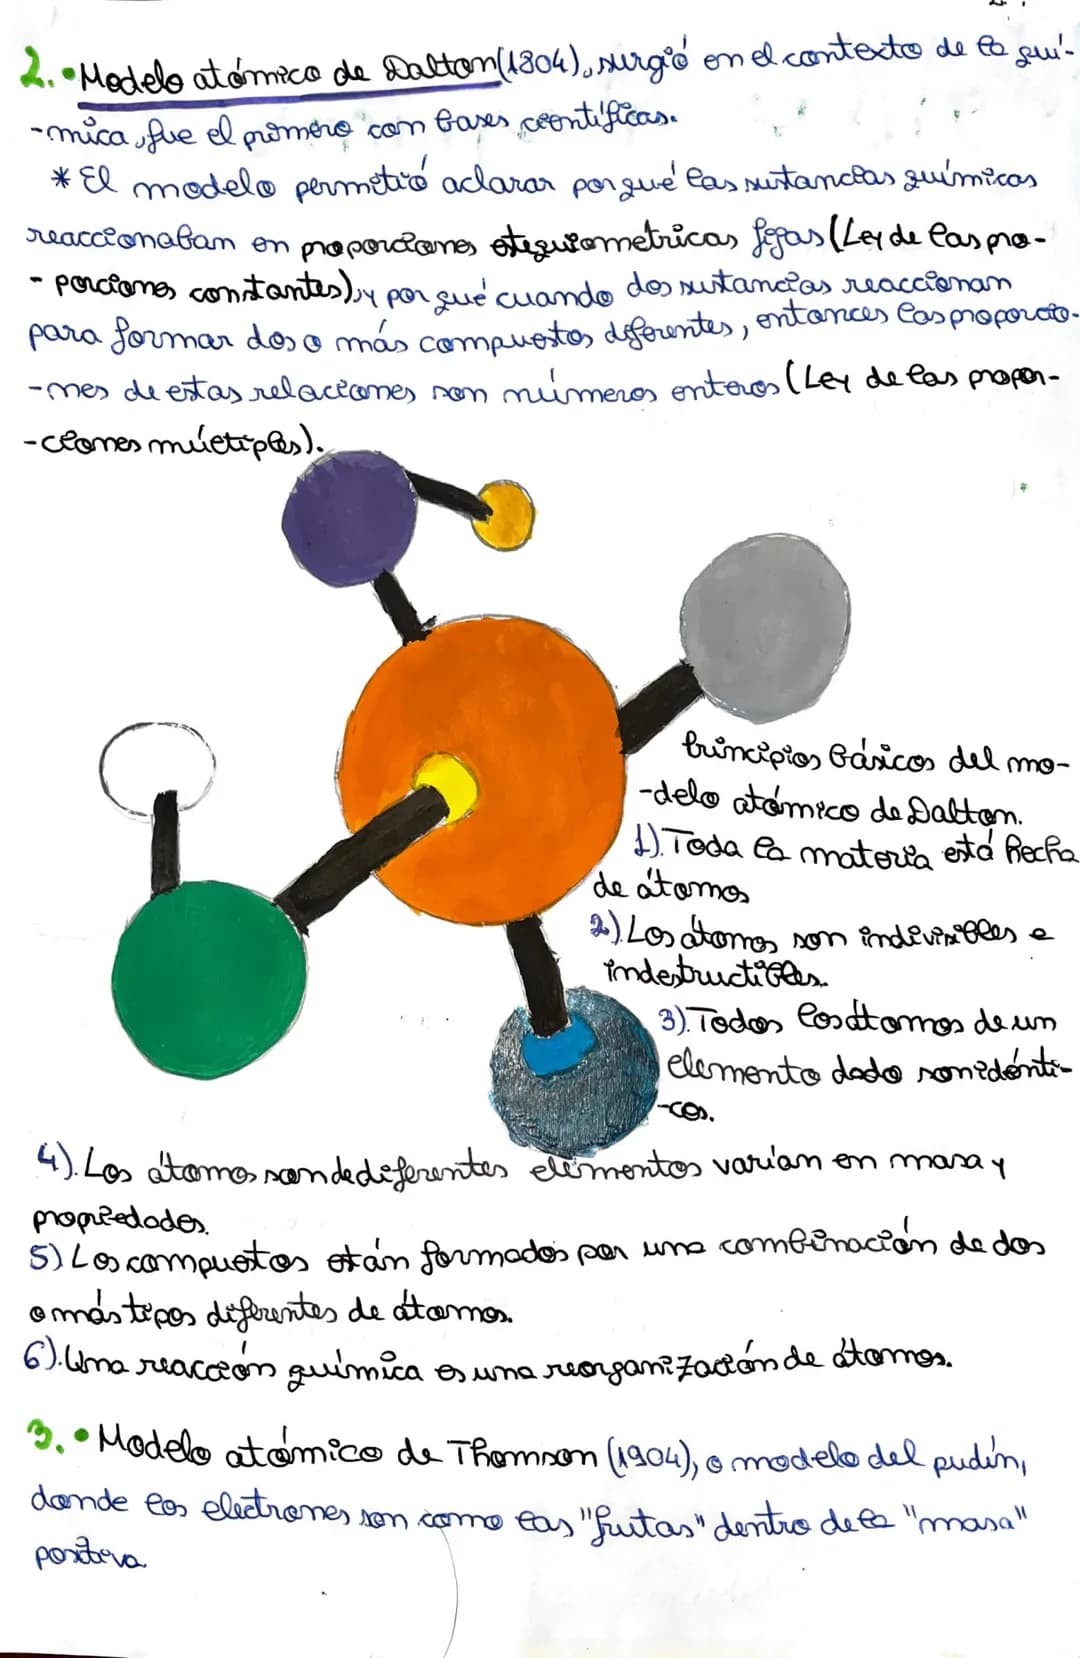 2. • Modelo atómico de Dalton (1804), surgió en el contexto de la quí-
-mica, fue el primero con bases científicas.
* El modelo permitió aclarar por qué las sustancias químicas
reaccionaban en proporciones estequiometricas fijas (Ley de las pro-
- porciones constantes), y por qué cuando dos sustancias reaccionan
para formar dos o más compuestos diferentes, entonces las proporcio-
-nes de estas relaciones son números enteros (Ley de las propor-
-ciones múltiples).
Principios básicos del mo-
-delo atómico de Dalton.
1). Toda la materia está hecha
de átomos
2). Los átomos son indivisibles e
indestructibles.
3). Todos los átomos de un
elemento dado son idénti-
-cos.
4). Los átomos son de diferentes elementos varian en masa y
propiedades.
5) Los compuestos están formados por una combinación de dos
o más tipos diferentes de átomos.
6). Una reacción química es una reorganización de átomos.
3. • Modelo atómico de Thomson (1904), o modelo del pudín,
donde los electrones son como las "frutas" dentro de la "masa"
positiva